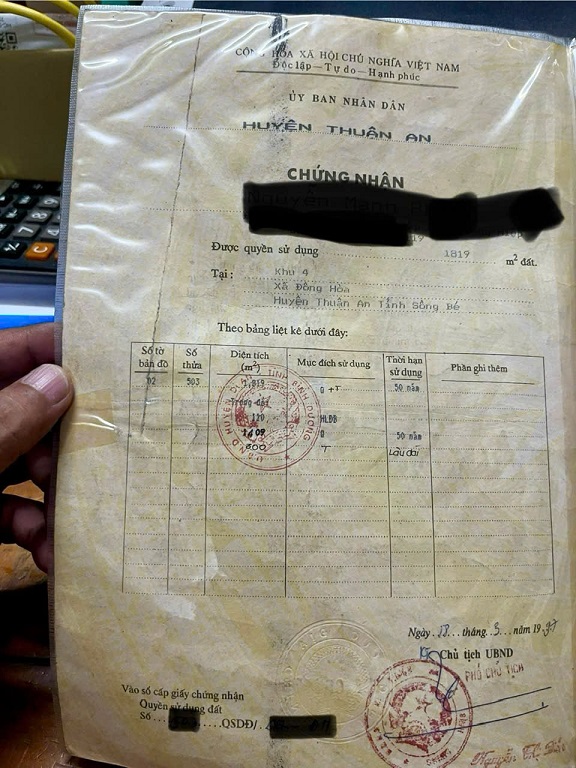 CỘNG HÒA XÃ HỘI CHỦ NGHĨA VIỆT NAM
Độc lập — Tự do — Hạnh phúc
ỦY BAN NHÂN DÂN
HUYỆN THUẬN AN
CHỨNG NHẬN
Được quyền sử dụng 1819 m² đất.
Tại : Khu 4
Xã Đông Hòa
Huyện Thuận An Tỉnh Sông Bé
Theo bảng liệt kê dưới đây:
Số tờ bản đồ Số thửa Diện tích (m²) Mục đích sử dụng Thời hạn sử dụng Phần ghi thêm
02 503 1.819 Q +T 50 năm
Trong đó:
120 HLĐB
Q 50 năm
600 T Lâu dài
Ngày .. tháng .3.. năm 1997
Chủ tịch UBND
PHÓ CHỦ TỊCH
Vào sổ cấp giấy chứng nhận
Quyền sử dụng đất
Số ... QSDĐ/